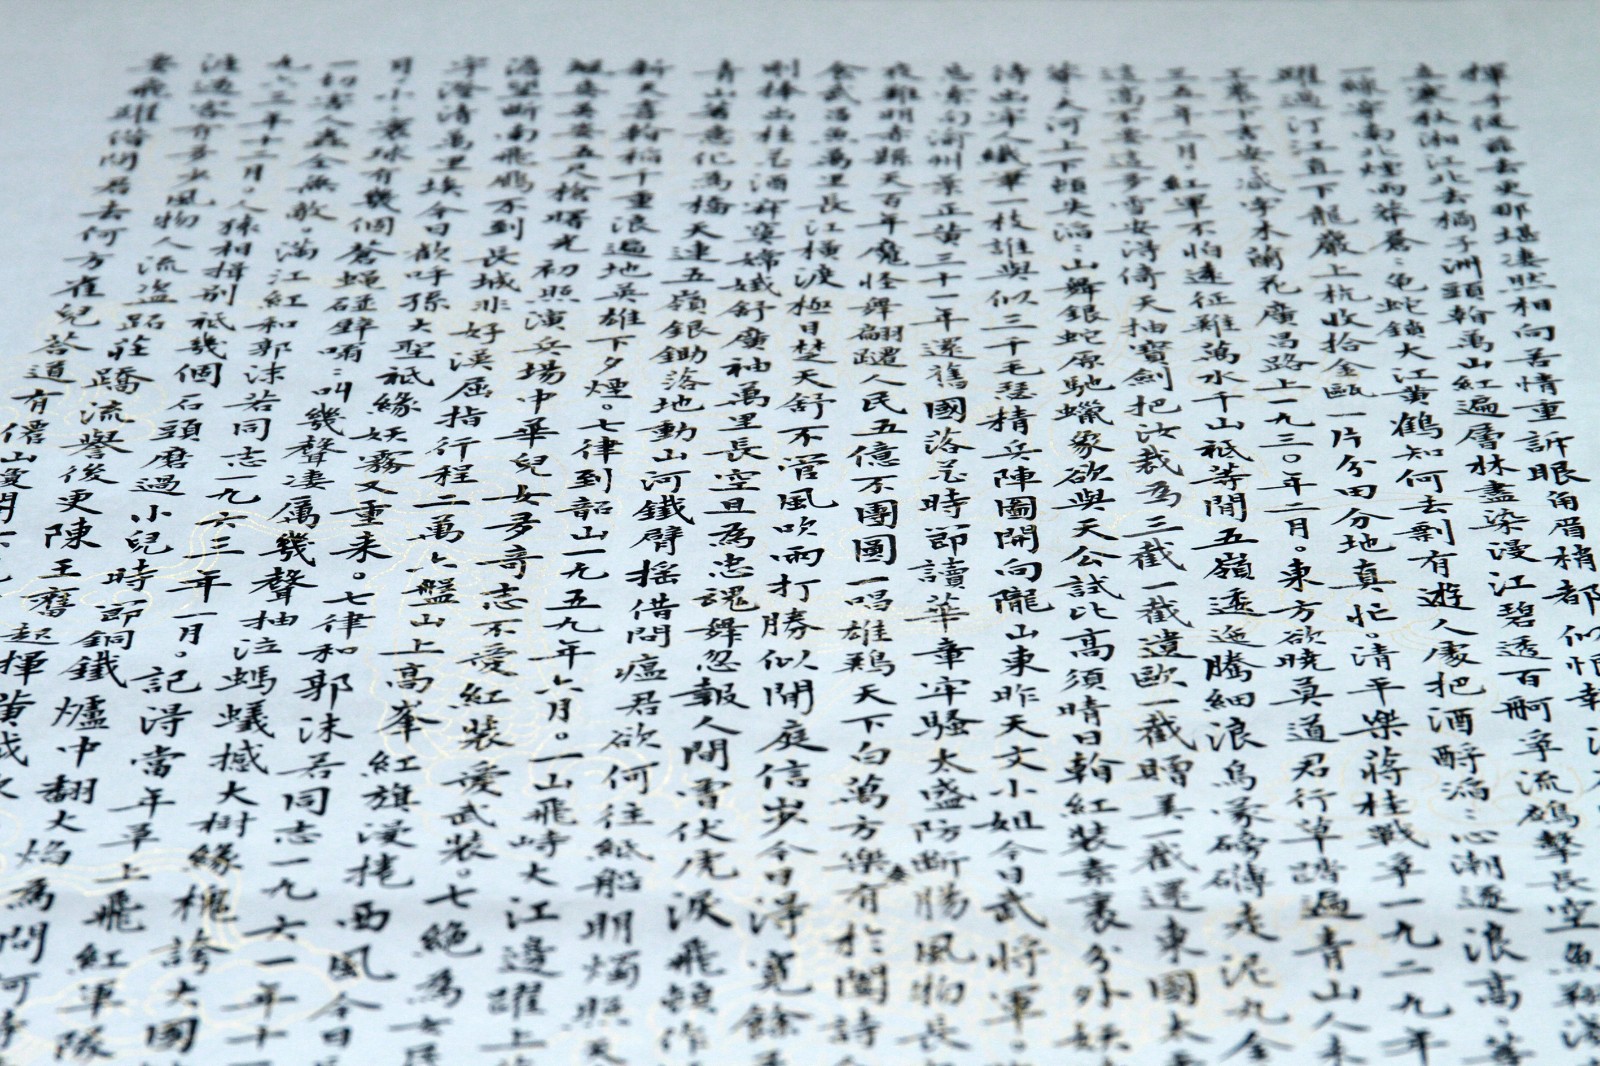 揮手從茲去更那堪淒然相向苦情重訴眼角眉梢都似恨
立寒秋湘江北去橘子洲頭看萬山紅遍層林盡染漫江碧透百舸爭流鷹擊長空魚翔淺
一線穿南北煙雨莽蒼〻龜蛇鎖大江黃鶴知何去剩有遊人處把酒酹滔〻心潮逐浪高〻等
躍過汀江直下龍巖上杭收拾金甌一片分田分地真忙。清平樂蔣桂戰爭一九二九年
工農下吉安減字木蘭花廣昌路上一九三〇年二月。東方欲曉莫道君行草踏遍青山人未
三五年二月。紅軍不怕遠征難萬水千山祇等閒五嶺逶迤騰細浪烏蒙磅礴走泥九金
這高不要這多雪安得倚天抽寶劍把汝裁為三截一截遺歐一截贈美一截還東國太
莽〻大河上下頓失滔〻山舞銀蛇原馳蠟象欲與天公試比高須晴日看紅裝素裹分外妖
詩出牢人纖筆一枝誰與似三千毛瑟精兵陣圖開向隴山東昨天文小姐今日武將軍。
忘索句渝州葉正黃三十一年還舊國落花時節讀華章牢騷太盛防斷腸風物長
夜難明赤縣天百年魔怪舞翩躚人民五億不團圓一唱雄雞天下白萬方樂有於闐詩
食武昌魚萬里長江橫渡極目楚天舒不管風吹雨打勝似閒庭信步今日得寬餘
剛捧出桂花酒寂寞嫦娥舒廣袖萬里長空且為忠魂舞忽報人間曾伏虎淚飛頓作
青山著意化為橋天連五嶺銀鋤落地動山河鐵臂搖借問瘟君欲何往紙船明燭照天
新又喜看稻千重浪遍地英雄下夕煙。七律到韶山一九五九年六月。一山飛峙大江邊躍上
颯爽英姿五尺槍曙光初照演兵場中華兒女多奇志不愛紅裝愛武裝。七絕為女民
望斷南飛雁不到長城非好漢屈指行程二萬六盤山上高峯紅旗漫捲西風今日
宇澄清萬里埃今日歡呼孫大聖祇緣妖霧又重來。七律和郭沫若同志一九六一年十一
月小寰球有幾個蒼蠅碰壁嗡〻叫幾聲淒厲幾聲抽泣螞蟻撼大樹緣槐誇大國
一切害人蟲全無敵。滿江紅和郭沫若同志一九六三年一月。記得當年草上飛紅軍隊
九六三年十二月。人猿相揖別祇幾個石頭磨過小兒時節銅鐵爐中翻火焰為問何時
過客有多少風物人流盜跖莊蹻流譽後更陳王奮起揮黃鉞
要飛躍借問君去何方雀兒答道有僊山瓊閣